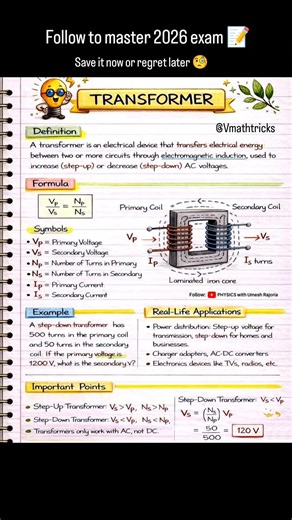 Follow to master 2026 exam 📝
Save it now or regret later 🧐
TRANSFORMER
@Vmathtricks
Definition
A transformer is an electrical device that transfers electrical energy
between two or more circuits through electromagnetic induction, used to
increase (step-up) or decrease (step-down) AC voltages.
Formula
Vp/Vs = Np/Ns
Primary Coil
Secondary Coil
Vp
Vs
Ip
Is turns
Laminated iron core
Symbols
• Vp = Primary Voltage
• Vs = Secondary Voltage
• Np = Number of Turns in Primary
• Ns = Number of Turns in Secondary
• Ip = Primary Current
• Is = Secondary Current
Follow: PHYSICS with Umesh Rajoria
Example
A step-down transformer has
500 turns in the primary coil
and 50 turns in the secondary
coil. If the primary voltage is
1200 V, what is the secondary v?
Real-Life Applications
• Power distribution: Step-up voltage for
transmission, step-down for homes and
businesses.
• Charger adapters, AC-DC converters
• Electronics devices like TVs, radios, etc.
Important Points
• Step-Up Transformer: Vs > Vp, Ns > Np
• Step-Down Transformer: Vs < Vp, Ns < Np,
• Transformers only work with AC, not DC.
Step-Down Transformer: Vs < Vp
Vs = (Ns/Np) Vp
= 50/500 = 120 V